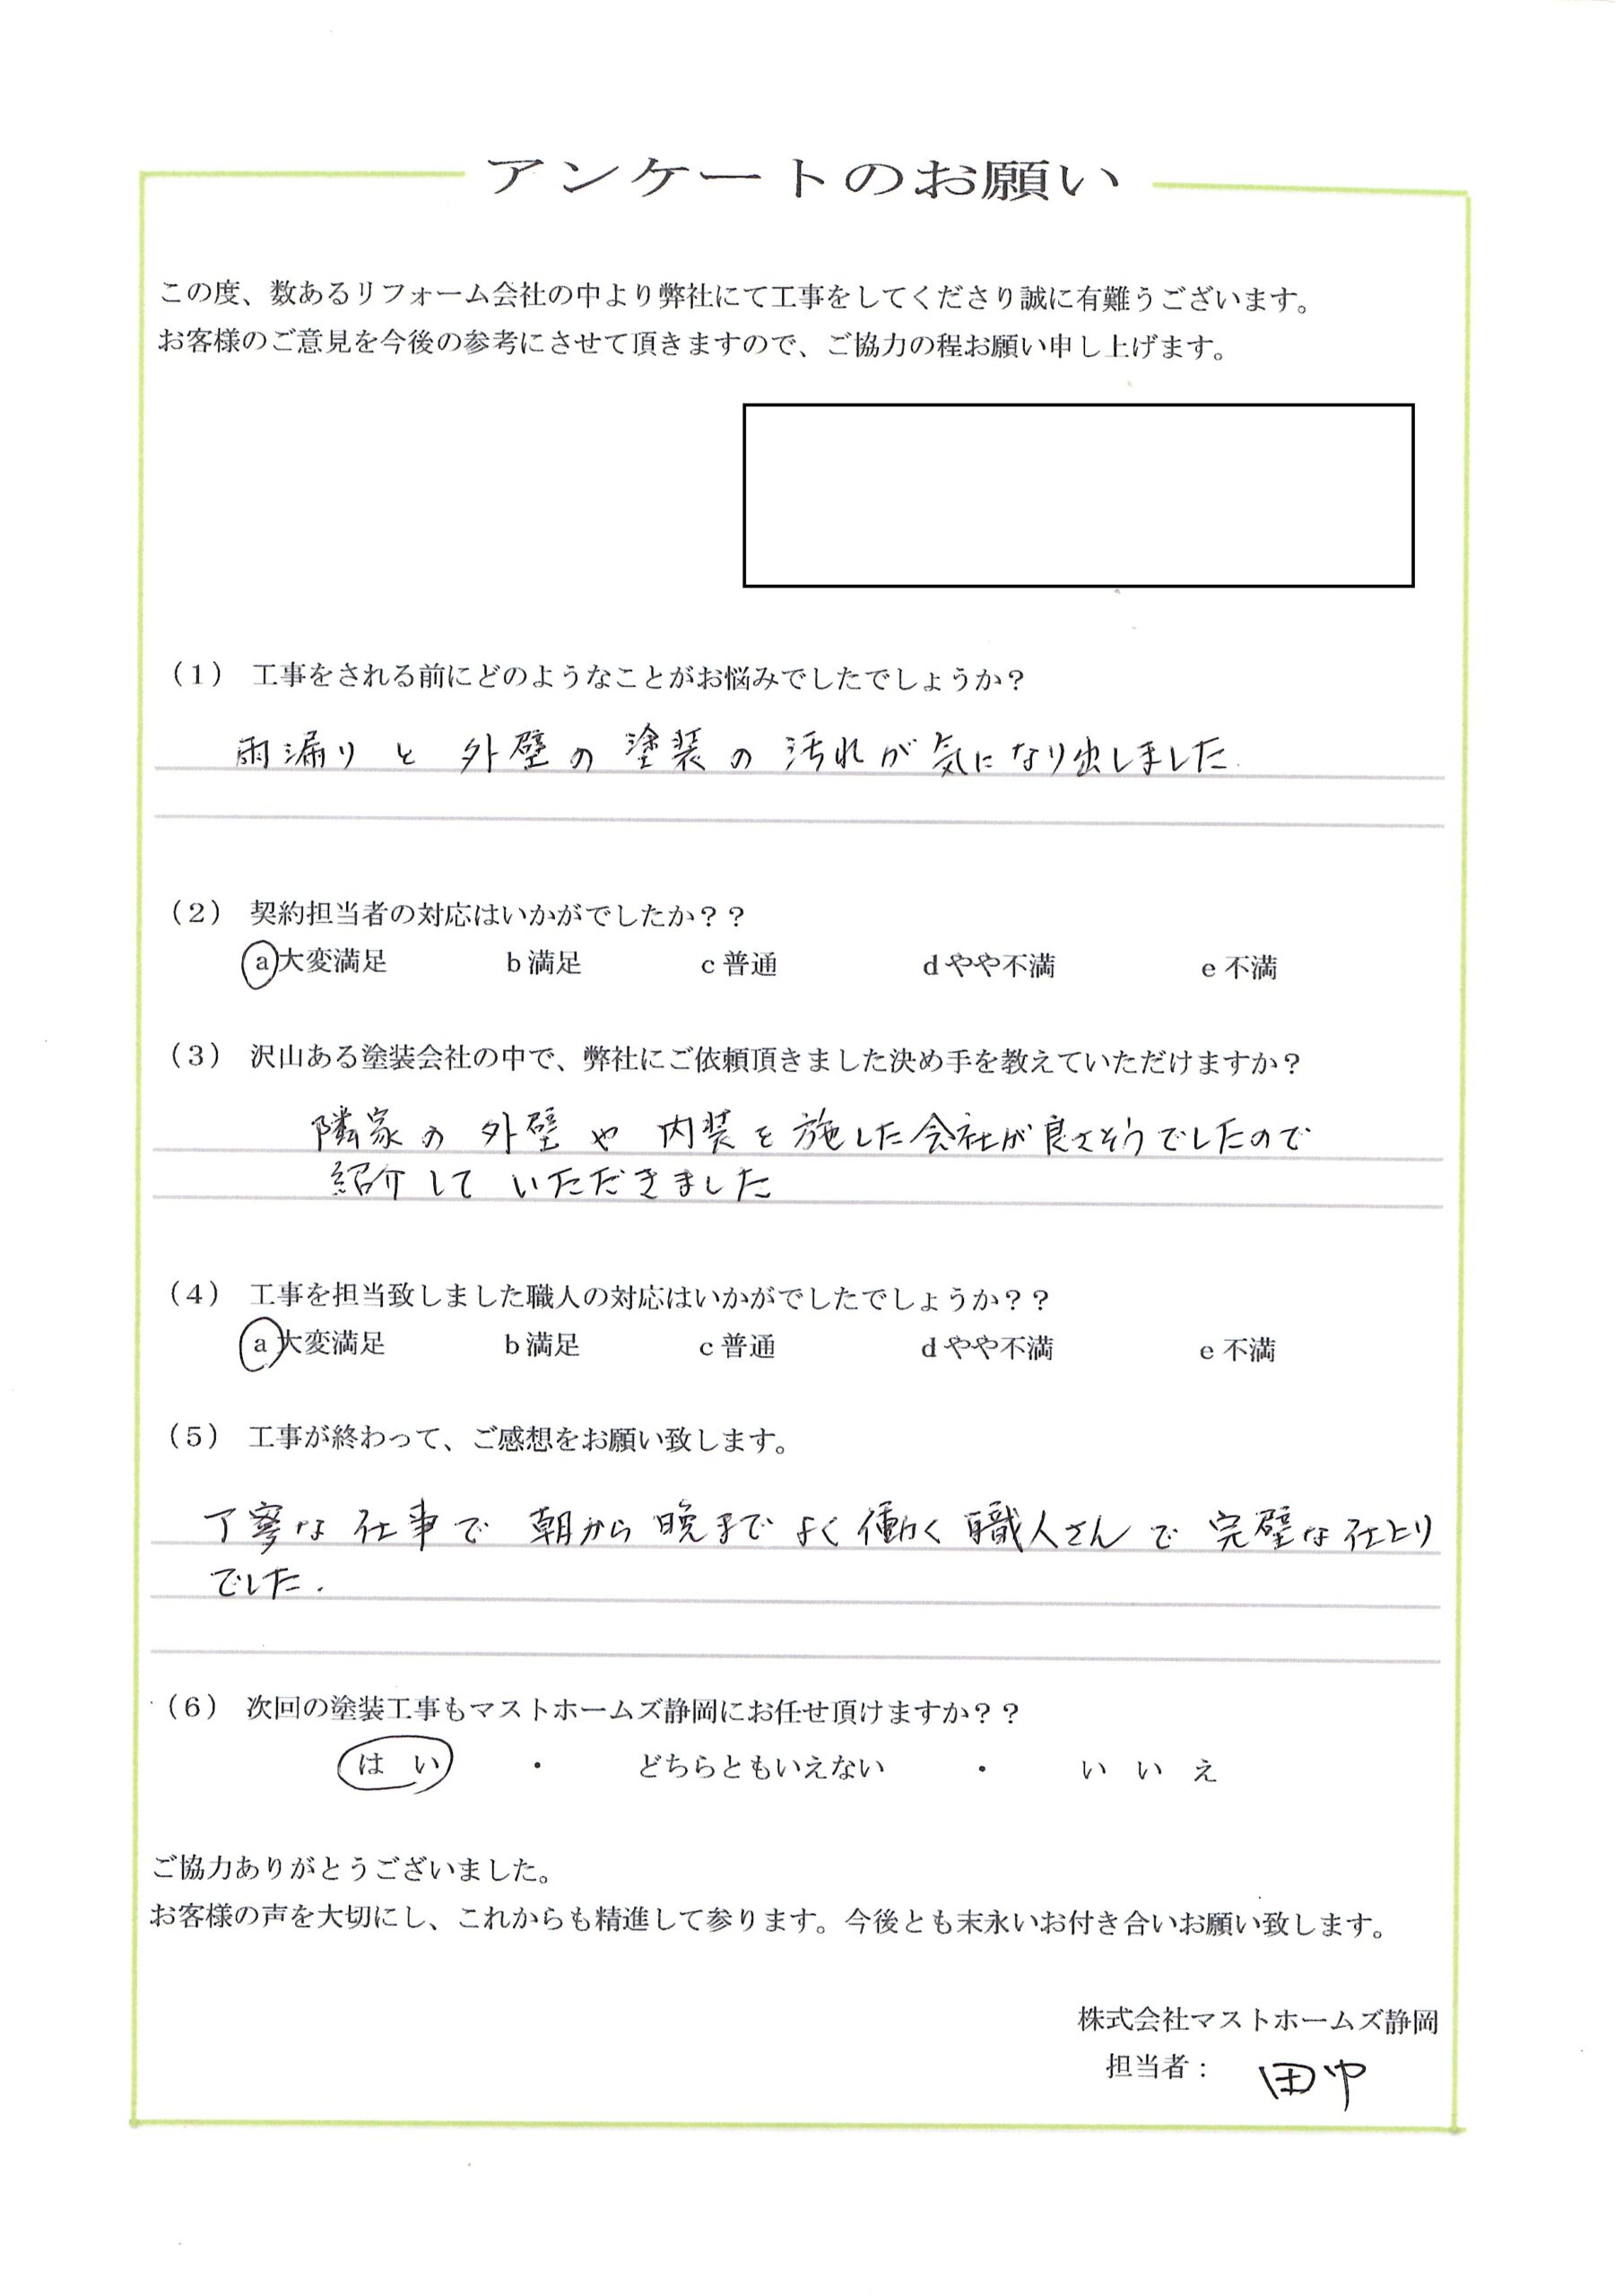 アンケートのお願い
この度、数あるリフォーム会社の中より弊社にて工事をしてくださり誠に有難うございます。
お客様のご意見を今後の参考にさせて頂きますので、ご協力の程お願い申し上げます。
（１） 工事をされる前にどのようなことがお悩みでしたでしょうか？
雨漏り と 外壁の 塗装の 汚れが 気になり出しました.
（２） 契約担当者の対応はいかがでしたか？？
a大変満足 b満足 c普通 dやや不満 e不満
（３） 沢山ある塗装会社の中で、弊社にご依頼頂きました決め手を教えていただけますか？
隣家の 外壁や 内装を施した会社が良さそうでしたので
紹介して いただきました
（４） 工事を担当致しました職人の対応はいかがでしたでしょうか？？
a大変満足 b満足 c普通 dやや不満 e不満
（５） 工事が終わって、ご感想をお願い致します。
丁寧な 仕事で 朝から晩まで よく働く 職人さんで 完璧な仕上り
でした.
（６） 次回の塗装工事もマストホームズ静岡にお任せ頂けますか？？
はい ・ どちらともいえない ・ いいえ
ご協力ありがとうございました。
お客様の声を大切にし、これからも精進して参ります。今後とも末永いお付き合いお願い致します。
株式会社マストホームズ静岡
担当者： 田中